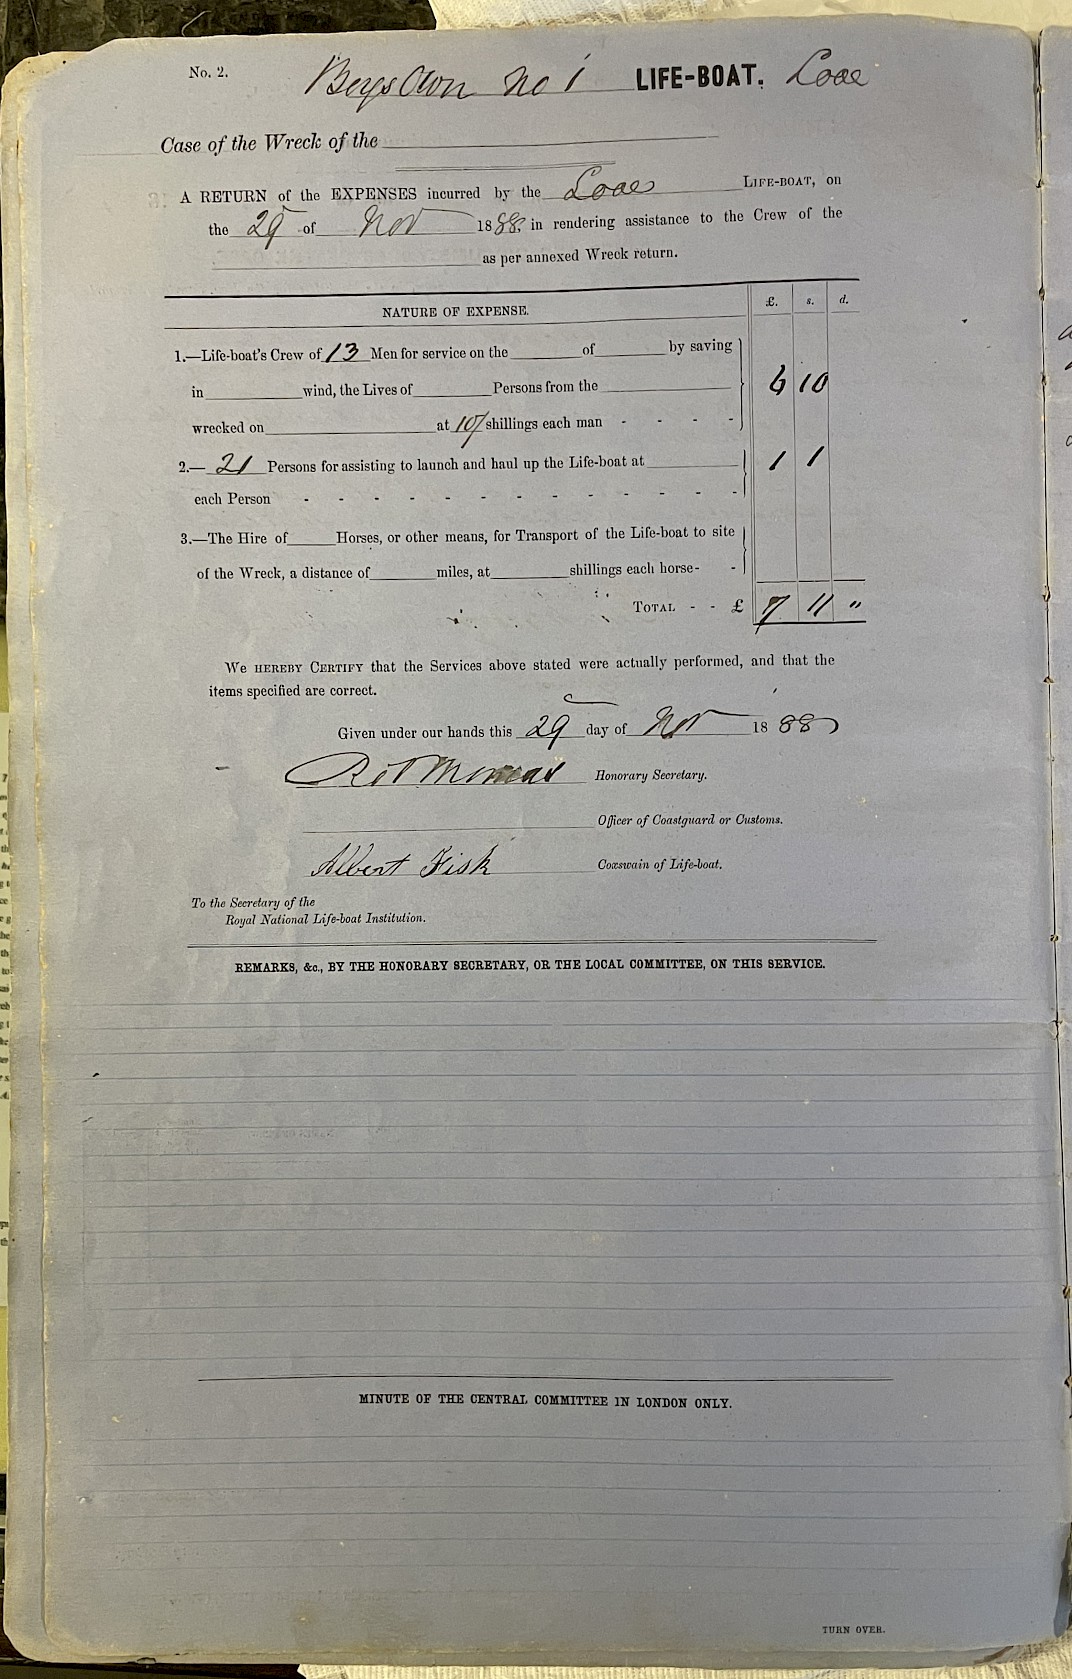 No. 2. Boys Own No 1 LIFE-BOAT. Looe
Case of the Wreck of the
A RETURN of the EXPENSES incurred by the Looe LIFE-BOAT, on
the 29 of Nov 1888 in rendering assistance to the Crew of the
as per annexed Wreck return.
NATURE OF EXPENSE. £. s. d.
1.—Life-boat's Crew of 13 Men for service on the of by saving
in wind, the Lives of Persons from the 6 10
wrecked on at 10/ shillings each man - - - -
2.— 21 Persons for assisting to launch and haul up the Life-boat at 1 1
each Person - - - - - - - - - - - - -
3.—The Hire of Horses, or other means, for Transport of the Life-boat to site
of the Wreck, a distance of miles, at shillings each horse- -
TOTAL - - £ 7 11 "
WE HEREBY CERTIFY that the Services above stated were actually performed, and that the
items specified are correct.
Given under our hands this 29 day of Nov 1888
Honorary Secretary.
Officer of Coastguard or Customs.
Albert Fisk Coxswain of Life-boat.
To the Secretary of the
Royal National Life-boat Institution.
REMARKS, &c., BY THE HONORARY SECRETARY, OR THE LOCAL COMMITTEE, ON THIS SERVICE.
MINUTE OF THE CENTRAL COMMITTEE IN LONDON ONLY.
TURN OVER.